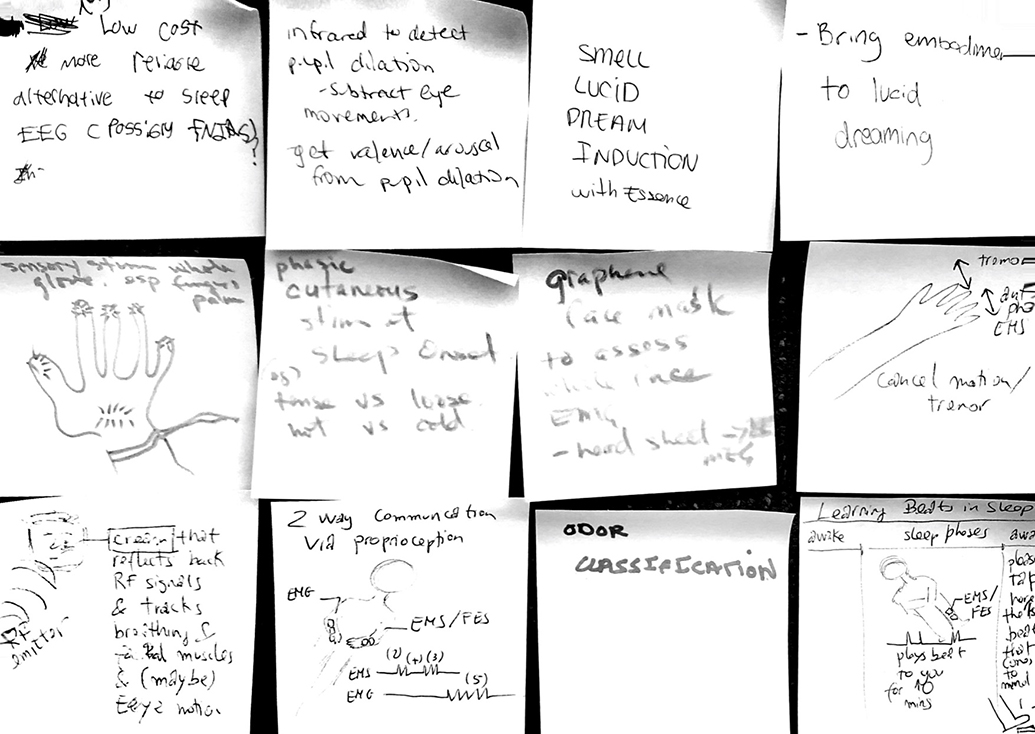 Low cost
more reliable
alternative to sleep
EEG (possibly fNIRS)?
infrared to detect
pupil dilation
- subtract eye
movements.
get valence/arousal
from pupil dilation
SMELL
LUCID
DREAM
INDUCTION
with Essence
- Bring embodimen
to lucid
dreaming
sensory stim whole
glove. esp fingers
palm
phasic
cutaneous
stim at
sleep onset
tense vs loose
hot vs cold
graphene
face mask
to assess
whole face
EMG
- head sheet →
tremo
EMS
cancel motion/
tremor
cream that
reflects back
RF signals
& tracks
breithing &
muscles
& (maybe)
motion
RF
emitter
2 way Communcation
via proprioception
EMG
EMS/FES
(2) (+) (3)
EMS
(5)
EMG
ODOR
CLASSIFICATION
Learning Beats in Sleep
awake
sleep phases
awa
EMS/
FES
plays beat
to you
for 10
mins
pleas
tap
here
the
beat
that
to